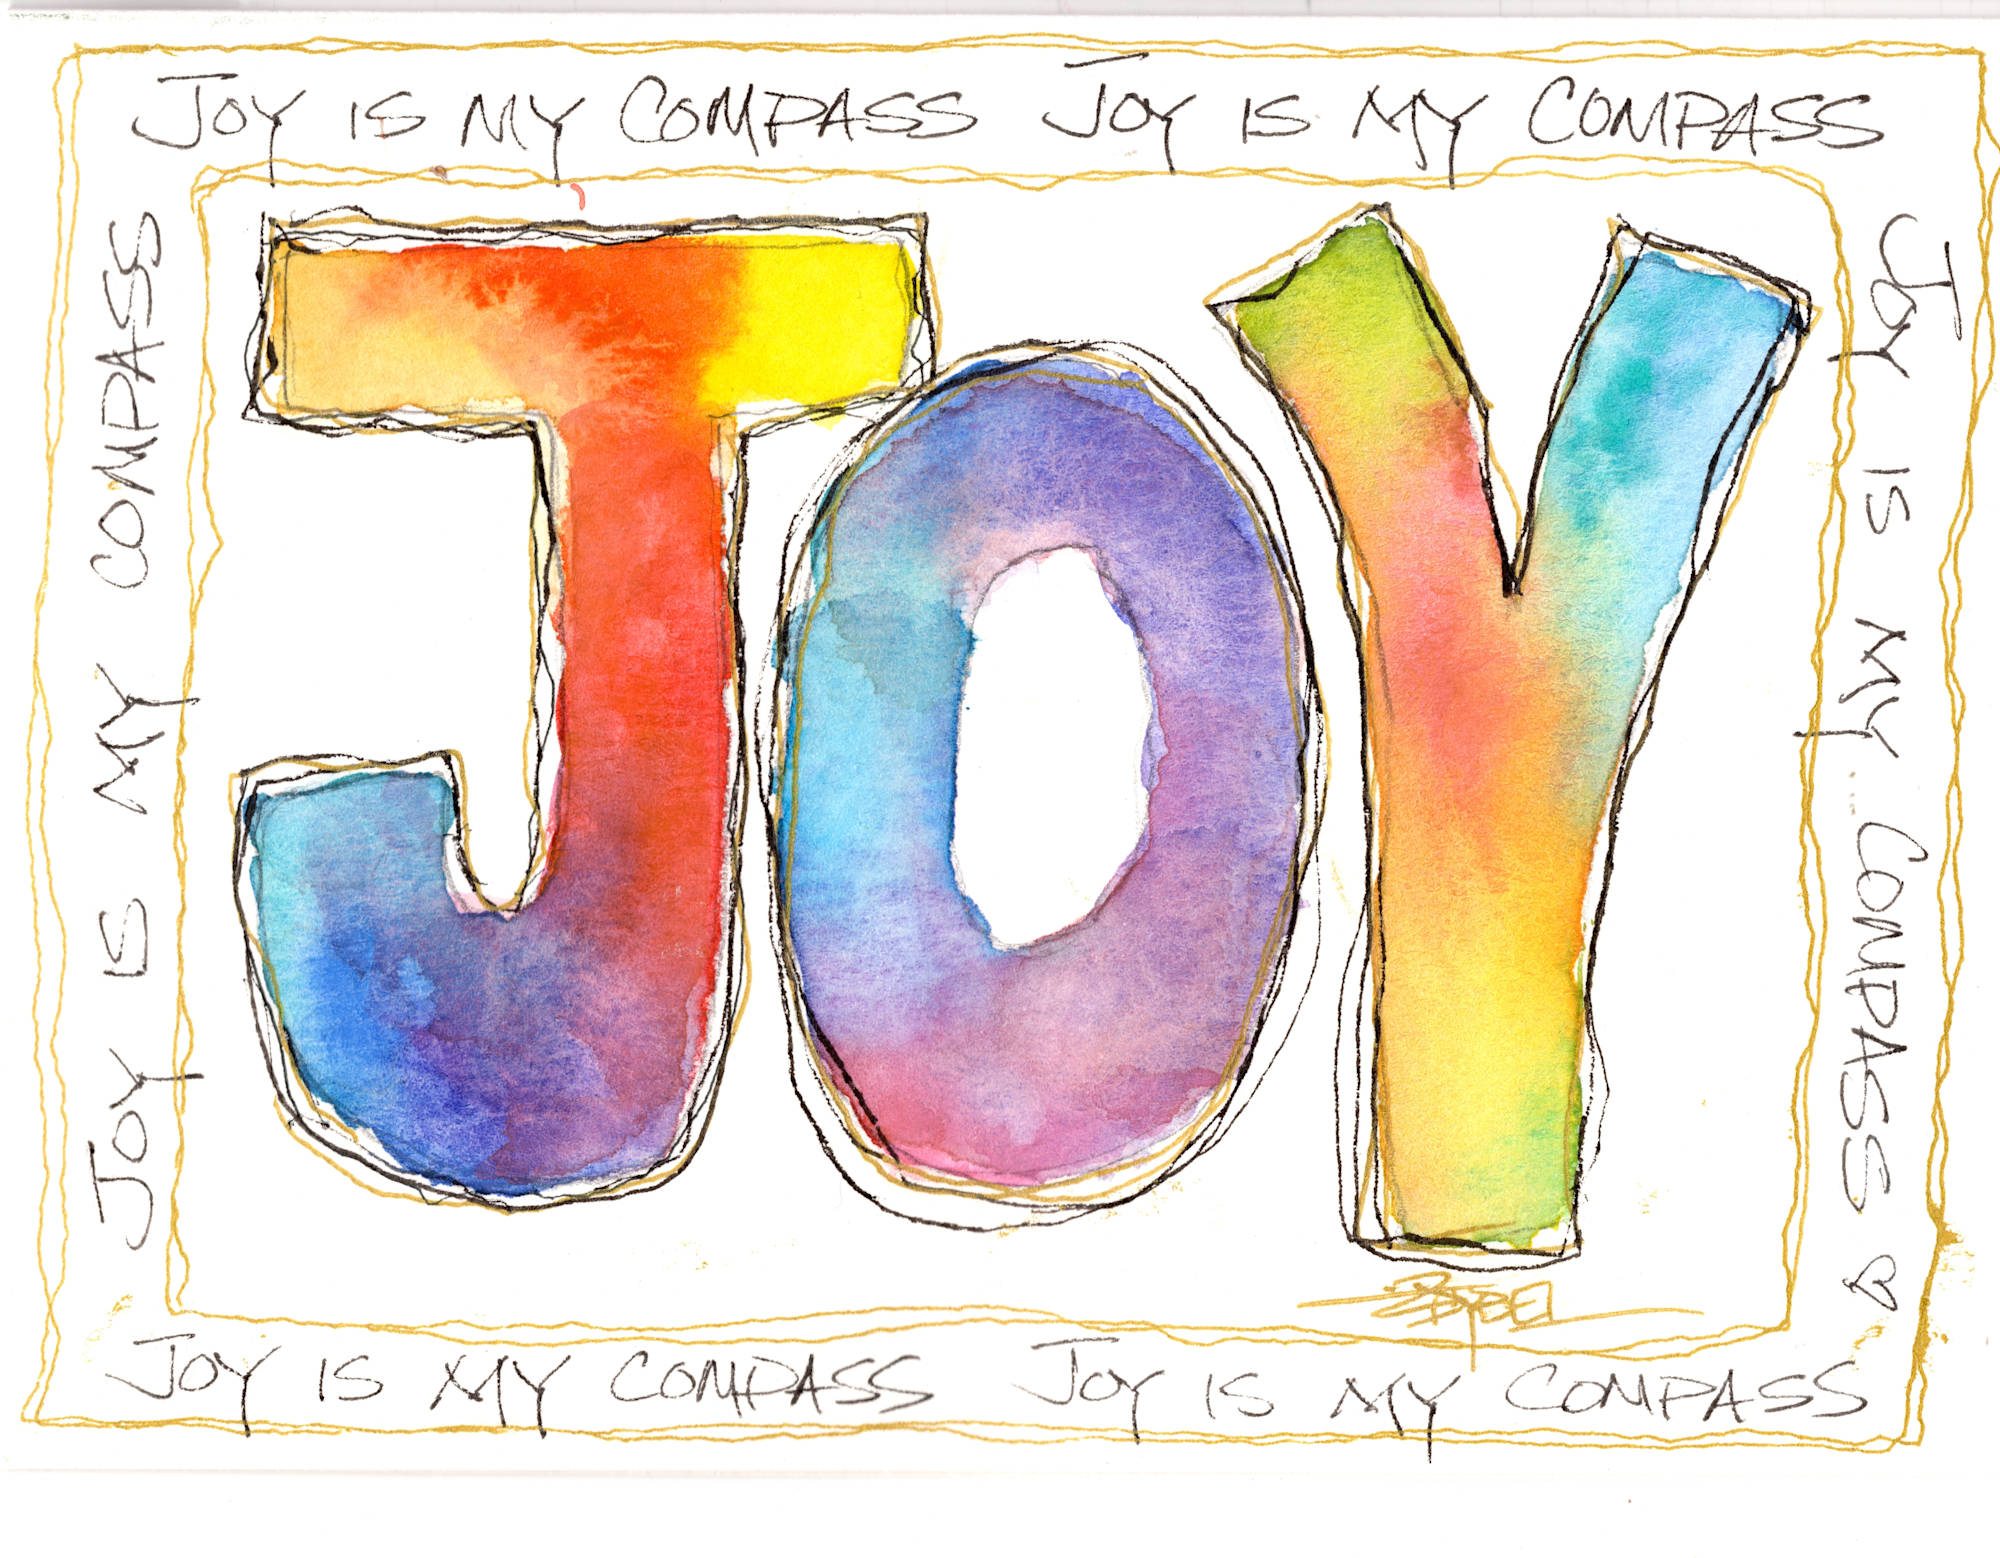 Joy is my Compass Joy is my Compass
Joy is my Compass
JOY
Joy is my Compass
Joy is my Compass Joy is my Compass